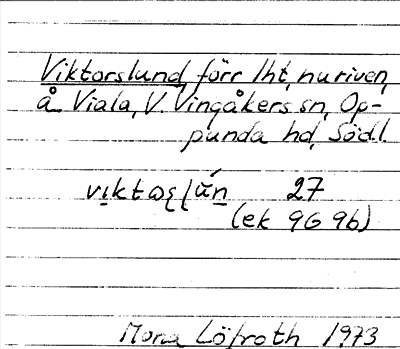 Viktorslund, förr lht, nu riven,
å Viala, V. Vingåkers sn, Op-
punda hd, Södl.
27
(ek 9G 9b)
Mona Löfroth 1973